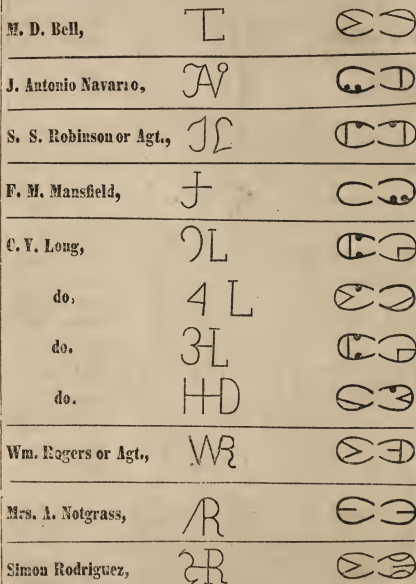 M. D. Bell, TL
J. Antonio Navarro, JAV
S. S. Robinson or Agt., JL
F. M. Mansfield, J
C. Y. Long, 9L
do, 4 L
do. 3-L
do. H-D
Wm. Rogers or Agt., WR
Mrs. A. Notgrass, /R
Simon Rodriguez, R